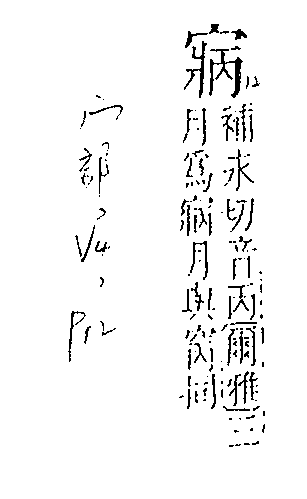 寎12
補永切音丙爾雅三
月爲寎月與窉同
宀部, V4, P12